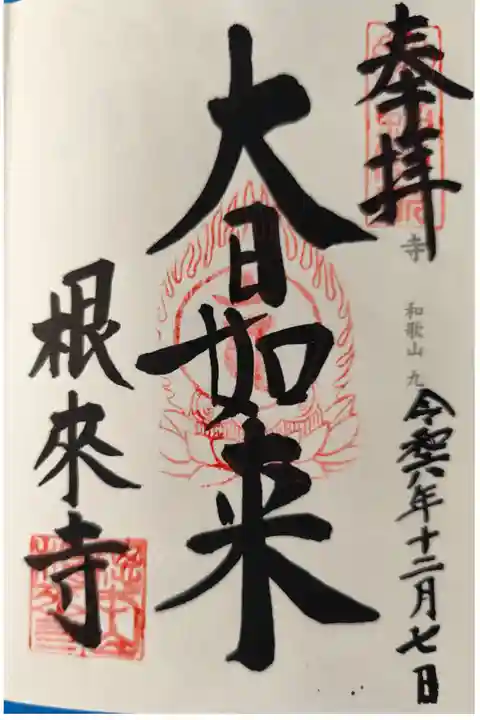 奉拝
寺
和歌山 九
令和六年十二月七日
大日如来
根來寺